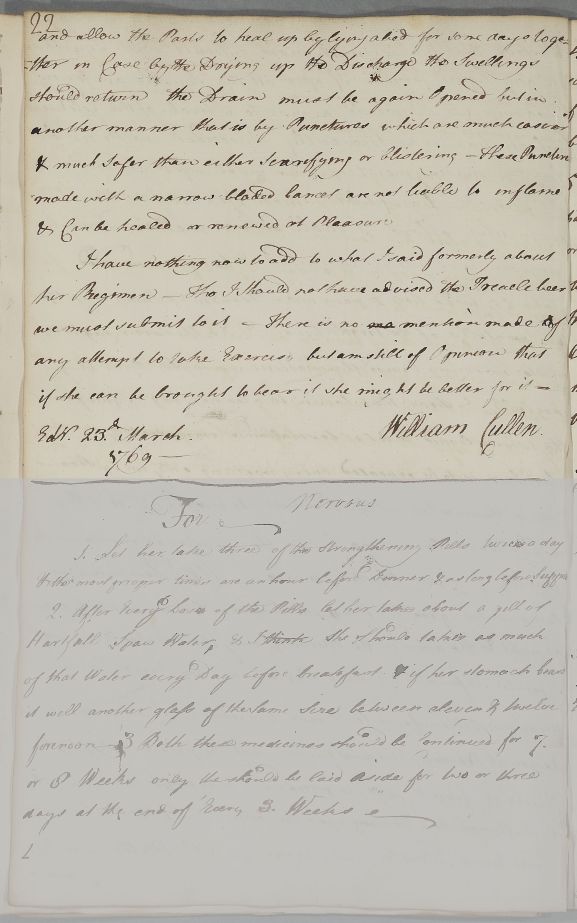 22
and allow the Parts to heal up by lying abed for some days toge-
-ther in Case by the Drying up the Discharge the Swellings
should return the Drain must be again Opened but in
another manner that is by Punctures which are much easier
& much safer than either Scarifying or blistering – these Punctures
made with a narrow bladed lancet are not liable to inflame
& Can be healed or renewed at Pleasure
I have nothing now to add to what I said formerly about
her Regimen – Tho I should not have advised the Treacle beer
we must submit to it – there is no mention made of
any attempt to take Exercise but am still of Opinion that
if she can be brought to bear it she might be better for it –
Edr. 23d. March. William Cullen.
1769 –
For Nervous
1. Let her take three of the Strengthening Pills twice a day
& the most proper times are an hour before Dinner & as long before Supper
2. After every Dose of the Pills let her take about a gill of
Hartfall Spaw Water, & I think She should take as much
of that Water every Day before breakfast & if her stomach bears
it well another glass of the same size between eleven & twelve
forenoon 3 Both these medicines should be Continued for 7.
or 8 Weeks only they should be laid aside for two or three
days at the end of Every 3. Weeks